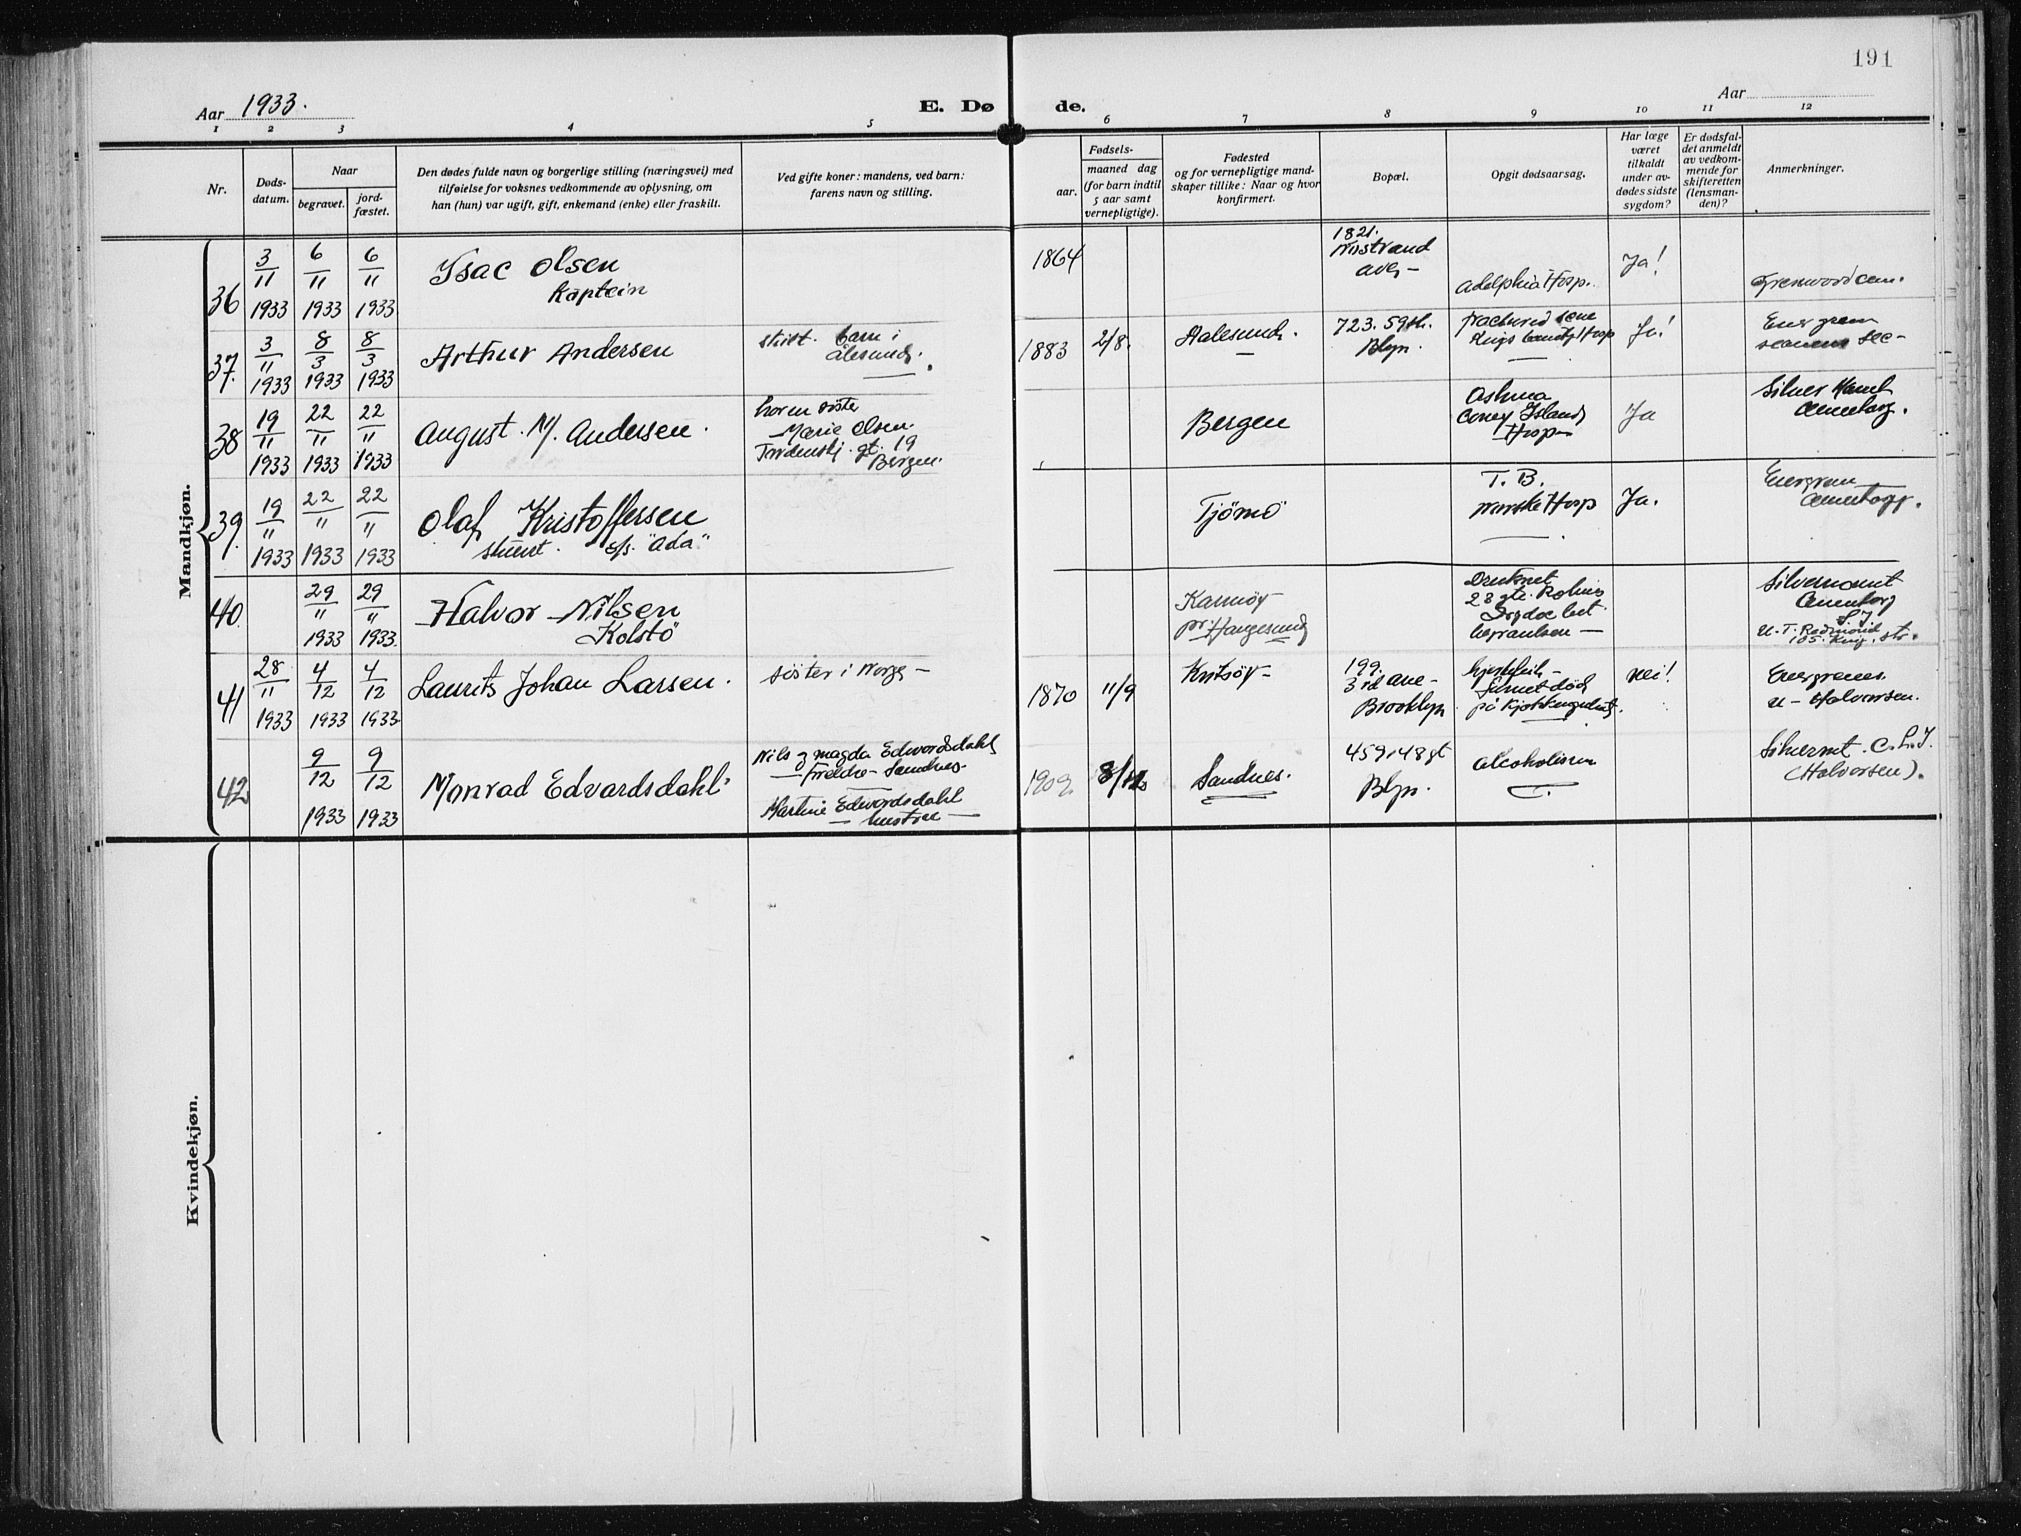 191
Aar 1933.
E. Dø de.
Aar
1 2 3 4 5 6 7 8 9 10 11 12
Nr.
Døds-
datum.
Naar
begravet.
jord-
fæstet.
Den dødes fulde navn og borgerlige stilling (næringsvei) med
tilføielse for voksnes vedkommende av oplysning, om
han (hun) var ugift, gift, enkemand (enke) eller fraskilt.
Ved gifte koner: mandens, ved barn:
farens navn og stilling.
Fødsels-
aar.
maaned dag
(for barn indtil
5 aar samt
vernepligtige).
Fødested
og for vernepligtige mand-
skaper tillike: Naar og hvor
konfirmert.
Bopæl.
Opgit dødsaarsag.
Har læge
været
tilkaldt
under av-
dødes sidste
sygdom?
Er dødsfal-
det anmeldt
av vedkom-
mende for
skifteretten
(lensman-
den)?
Anmerkninger.
Mandkjøn.
36
3/11 1933
6/11 1933
6/11 1933
Isac Olsen
Kaptein
1864
1821.
Nostrand
ave
Adelphia Hosp.
Ja!
Grenwood cem.
37.
3/11 1933
8/3 1933
8/3 1933
Arthur Andersen
barn i
Ålesund.
1883 2/8.
Aalesund.
723. 59th.
Blyn.
Kings County Hosp
Ja!
Evergreen
38
19/11 1933
22/11 1933
22/11 1933
August M. Andersen.
søster
Marie Olsen
gt. 19
Bergen.
Bergen
Asthma
Coney Island
Hosp
Ja
Silver Mount
Cemetary.
39.
19/11 1933
22/11 1933
22/11 1933
Olaf Kristoffersen
stuert. c/s. "Ada"
Tjömö
T. B.
Norske Hosp
Ja.
Evergreen
40.
29/11 1933
29/11 1933
Halvor Nilsen
Kolstö
Karmöy
pr. Haugesund
Druknet
Silvermount
Cemetary
S.I.
u. T. Redmond
105. King. str.
41
28/11 1933
4/12 1933
4/12 1933
Laurits Johan Larsen.
søster i Norge
1870 11/9
199.
3rd ave
Brooklyn
nei!
Evergreens
u - Halvorsen.
42
9/12 1933
9/12 1933
Monrad Edvardsdahl
Nils og Magda Edwardsdahl
foreldre - Sandnes
Martine Edwardsdahl
hustru
1909.
Sandnes.
459, 48 gt
Blyn.
Alcoholism
Silvermt. C. S.I.
(Halvorsen).
Kvindekjøn.